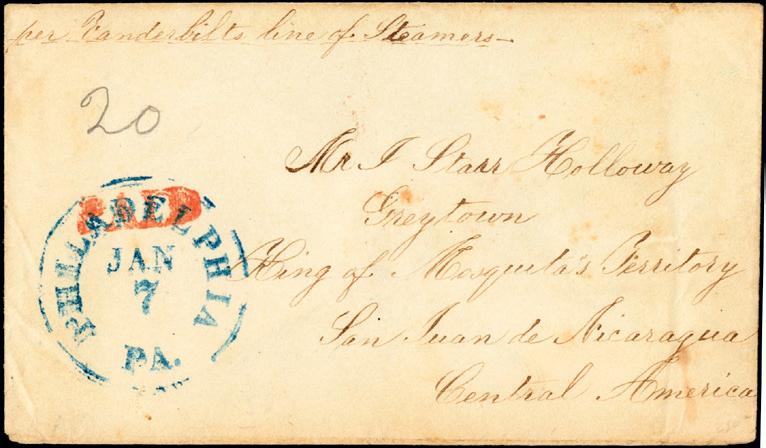 per Vanderbilts line of Steamers
20
Mr J Starr Holloway
Greytown
King of Mosquita's Territory
San Juan de Nicaragua
Central America
PAID
PHILADELPHIA
JAN
7
PA.